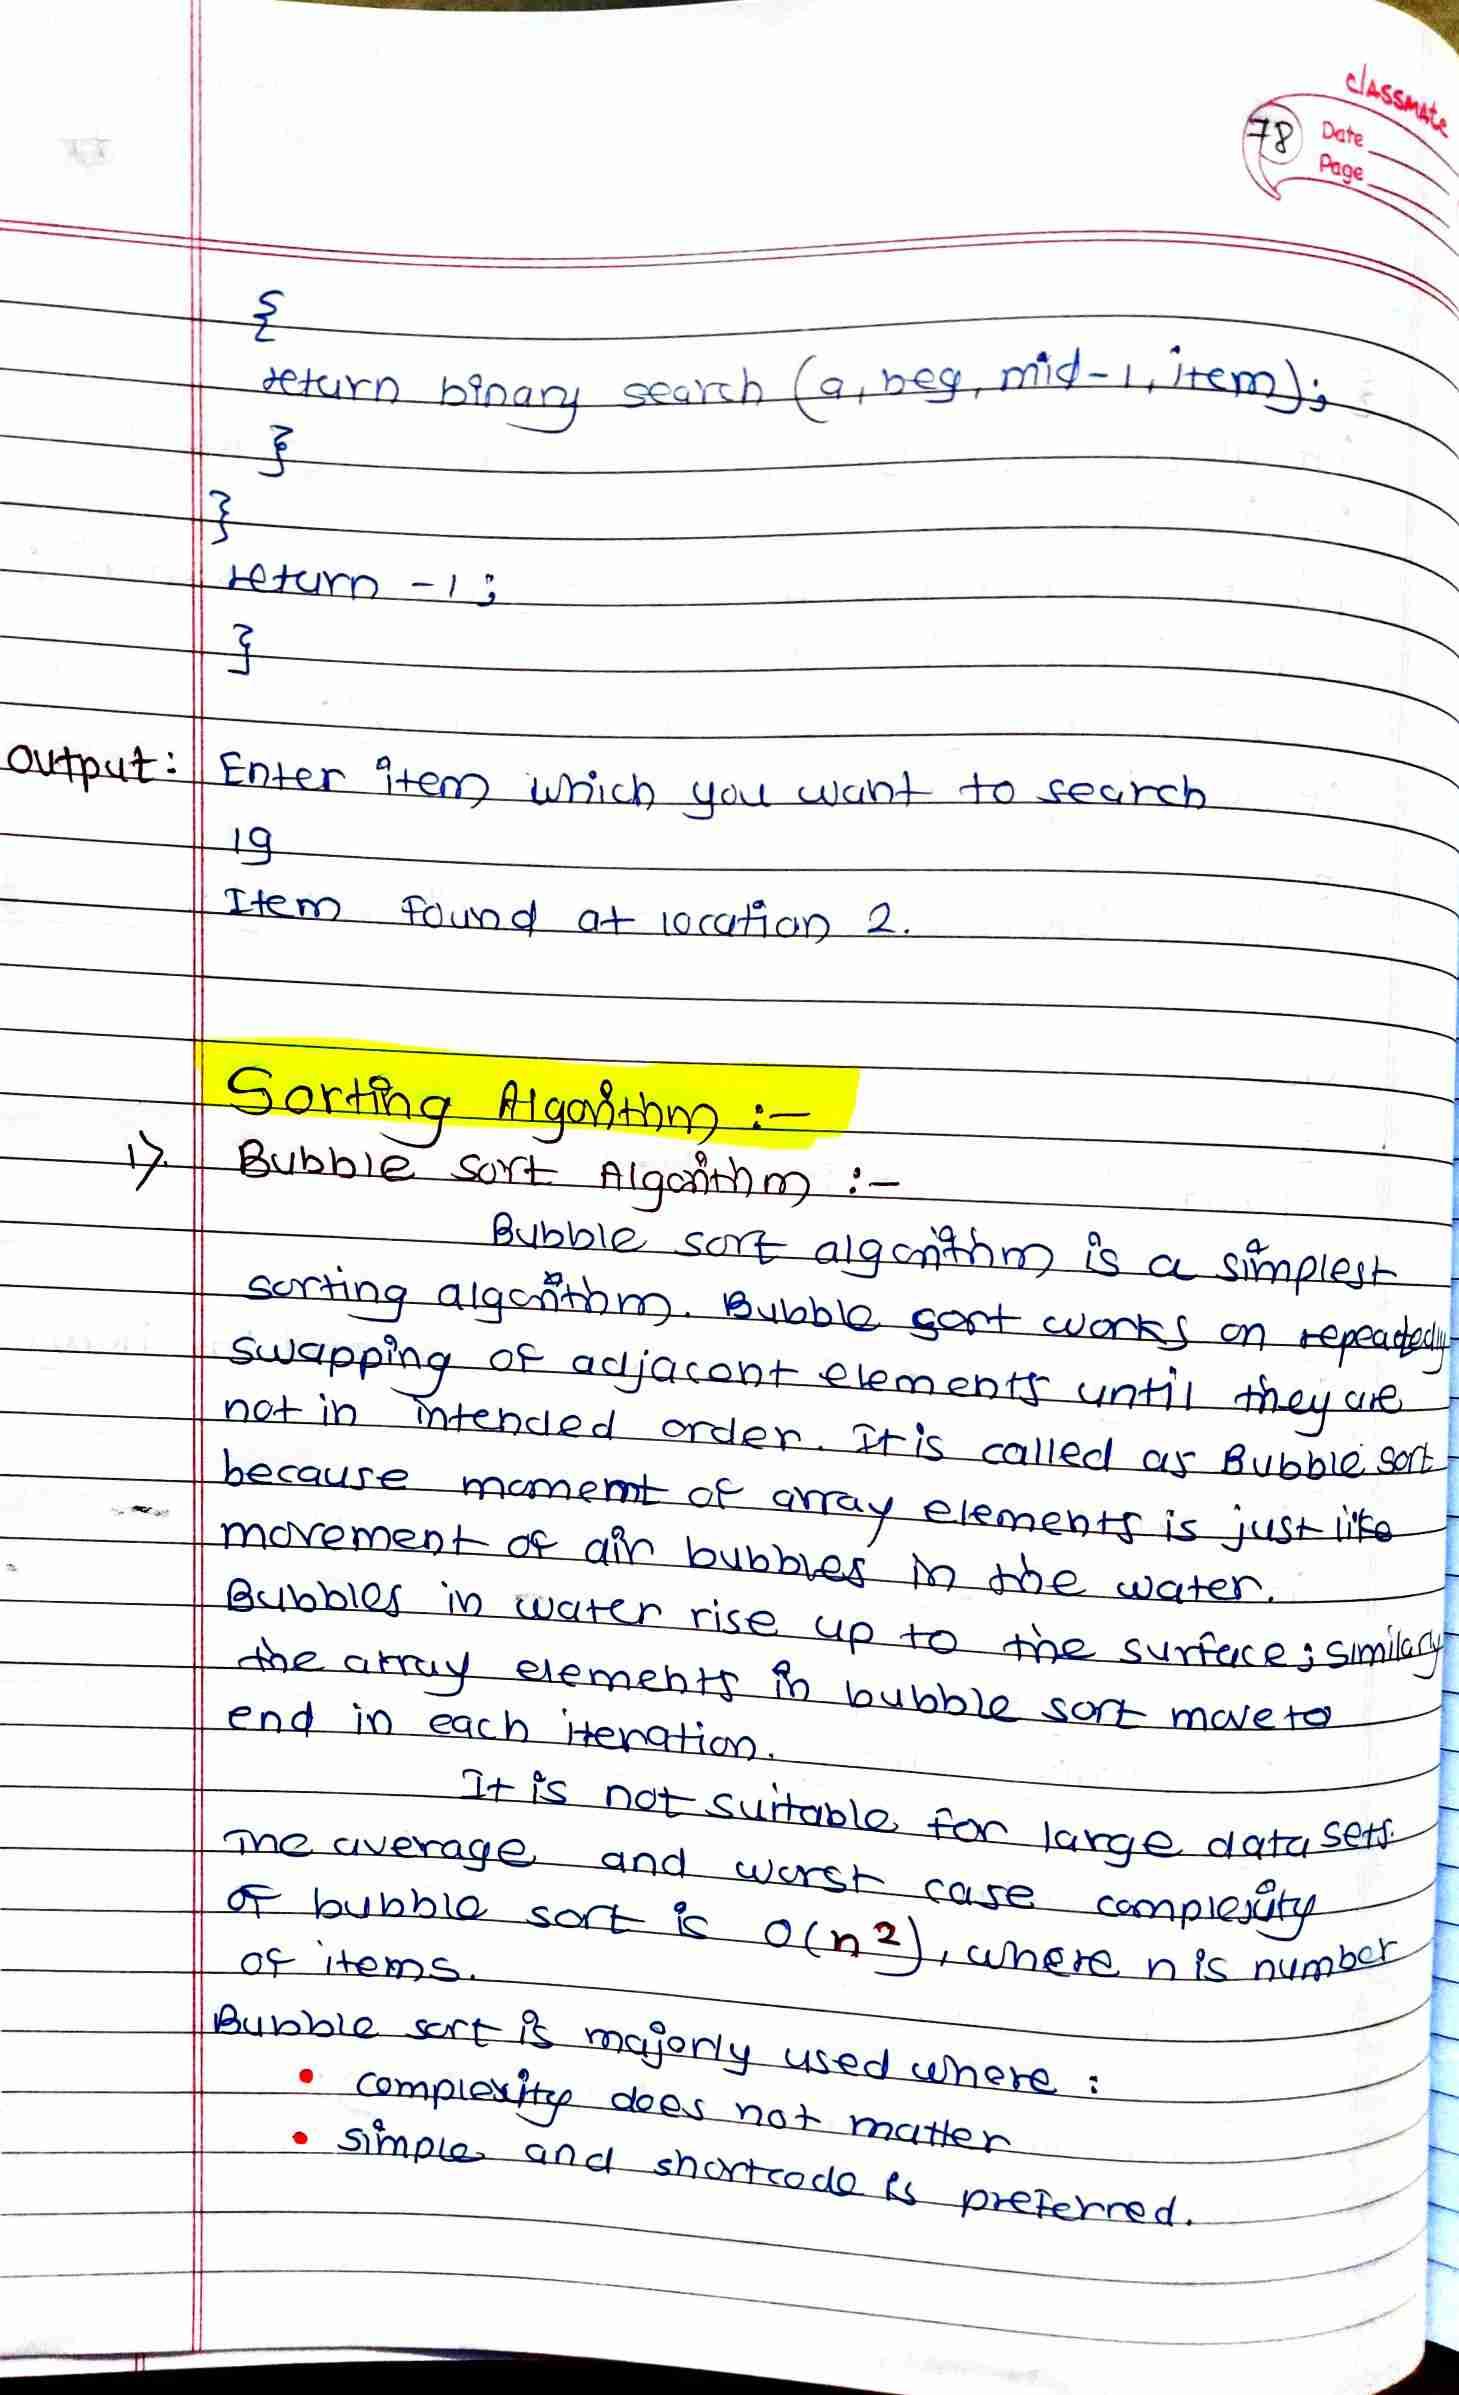 classmate
78
Date
Page
{
return binary search (a, beg, mid-1, item);
}
}
return -1;
}
Output: Enter item which you want to search
19
Item found at location 2.
Sorting Algorithm :-
1). Bubble sort Algorithm :-
Bubble sort algorithm is a simplest
sorting algorithm. Bubble sort works on repeatedly
swapping of adjacent elements until they are
not in intended order. It is called as Bubble sort
because moment of array elements is just like
movement of air bubbles in the water.
Bubbles in water rise up to the surface; similarly
the array elements in bubble sort move to
end in each iteration.
It is not suitable for large data sets.
The average and worst case complexity
of bubble sort is O(n²), where n is number
of items.
Bubble sort is majorly used where :
• complexity does not matter
• simple and shortcode is preferred.